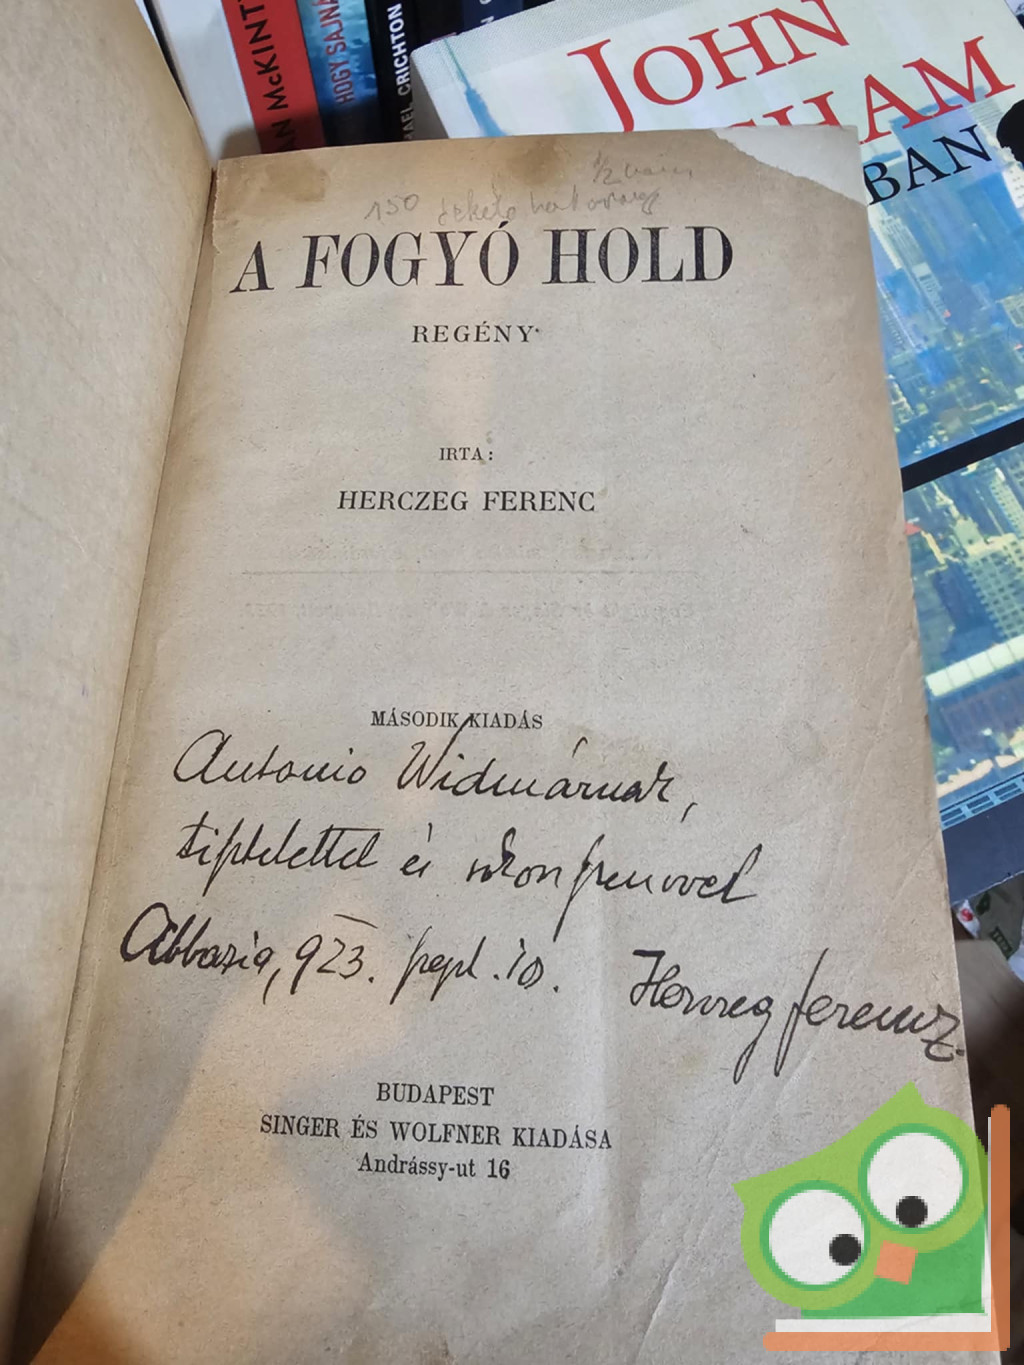 AN MCKINT
HOGY SAJNÁ
AEL CRICHTON
JOHN
HAM
BAN
150 fekete
A FOGYÓ HOLD
REGÉNY
IRTA:
HERCZEG FERENC
MÁSODIK KIADÁS
Antonio Widmárnak,
tisztelettel és rokonszenvvel
Abbazia, 923. szept. 10. Herczeg Ferencz.
BUDAPEST
SINGER ÉS WOLFNER KIADÁSA
Andrássy-ut 16